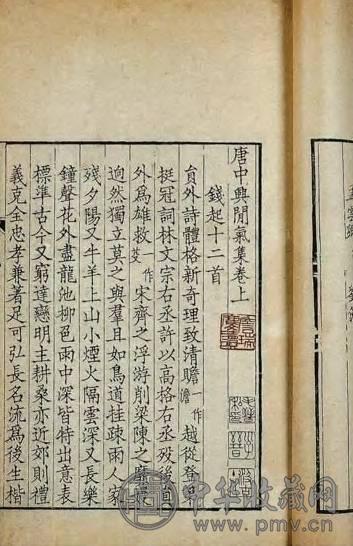 唐中興閒氣集卷上
錢起十二首
貟外詩體格新奇理致清贍一作澹越從登
挺冠詞林文宗右丞許以高格右丞歿後員
外爲雄救一作芟宋齊之浮游削梁陳之
逈然獨立莫之與羣且如鳥道挂疎雨人家
殘夕陽又牛羊上山小煙火隔雲深又長樂
鐘聲花外盡龍池柳色雨中深皆特出意表
標準古今又窮達戀明主耕桑亦近郊則禮
義克全忠孝兼著足可弘長名流爲後生楷
中华收藏网
www.pmv.cn